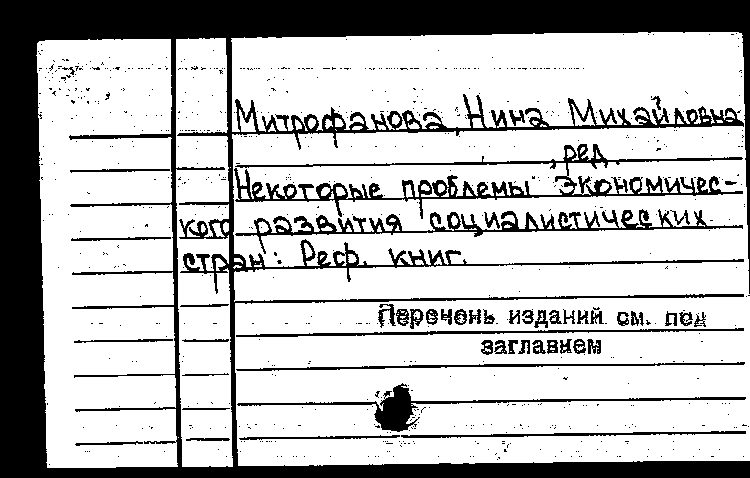 Митрофанова, Нина Михайловна
, ред.
Некоторые проблемы экономичес-
кого развития социалистических
стран: Реф. книг.
Перечень изданий см. под
заглавием